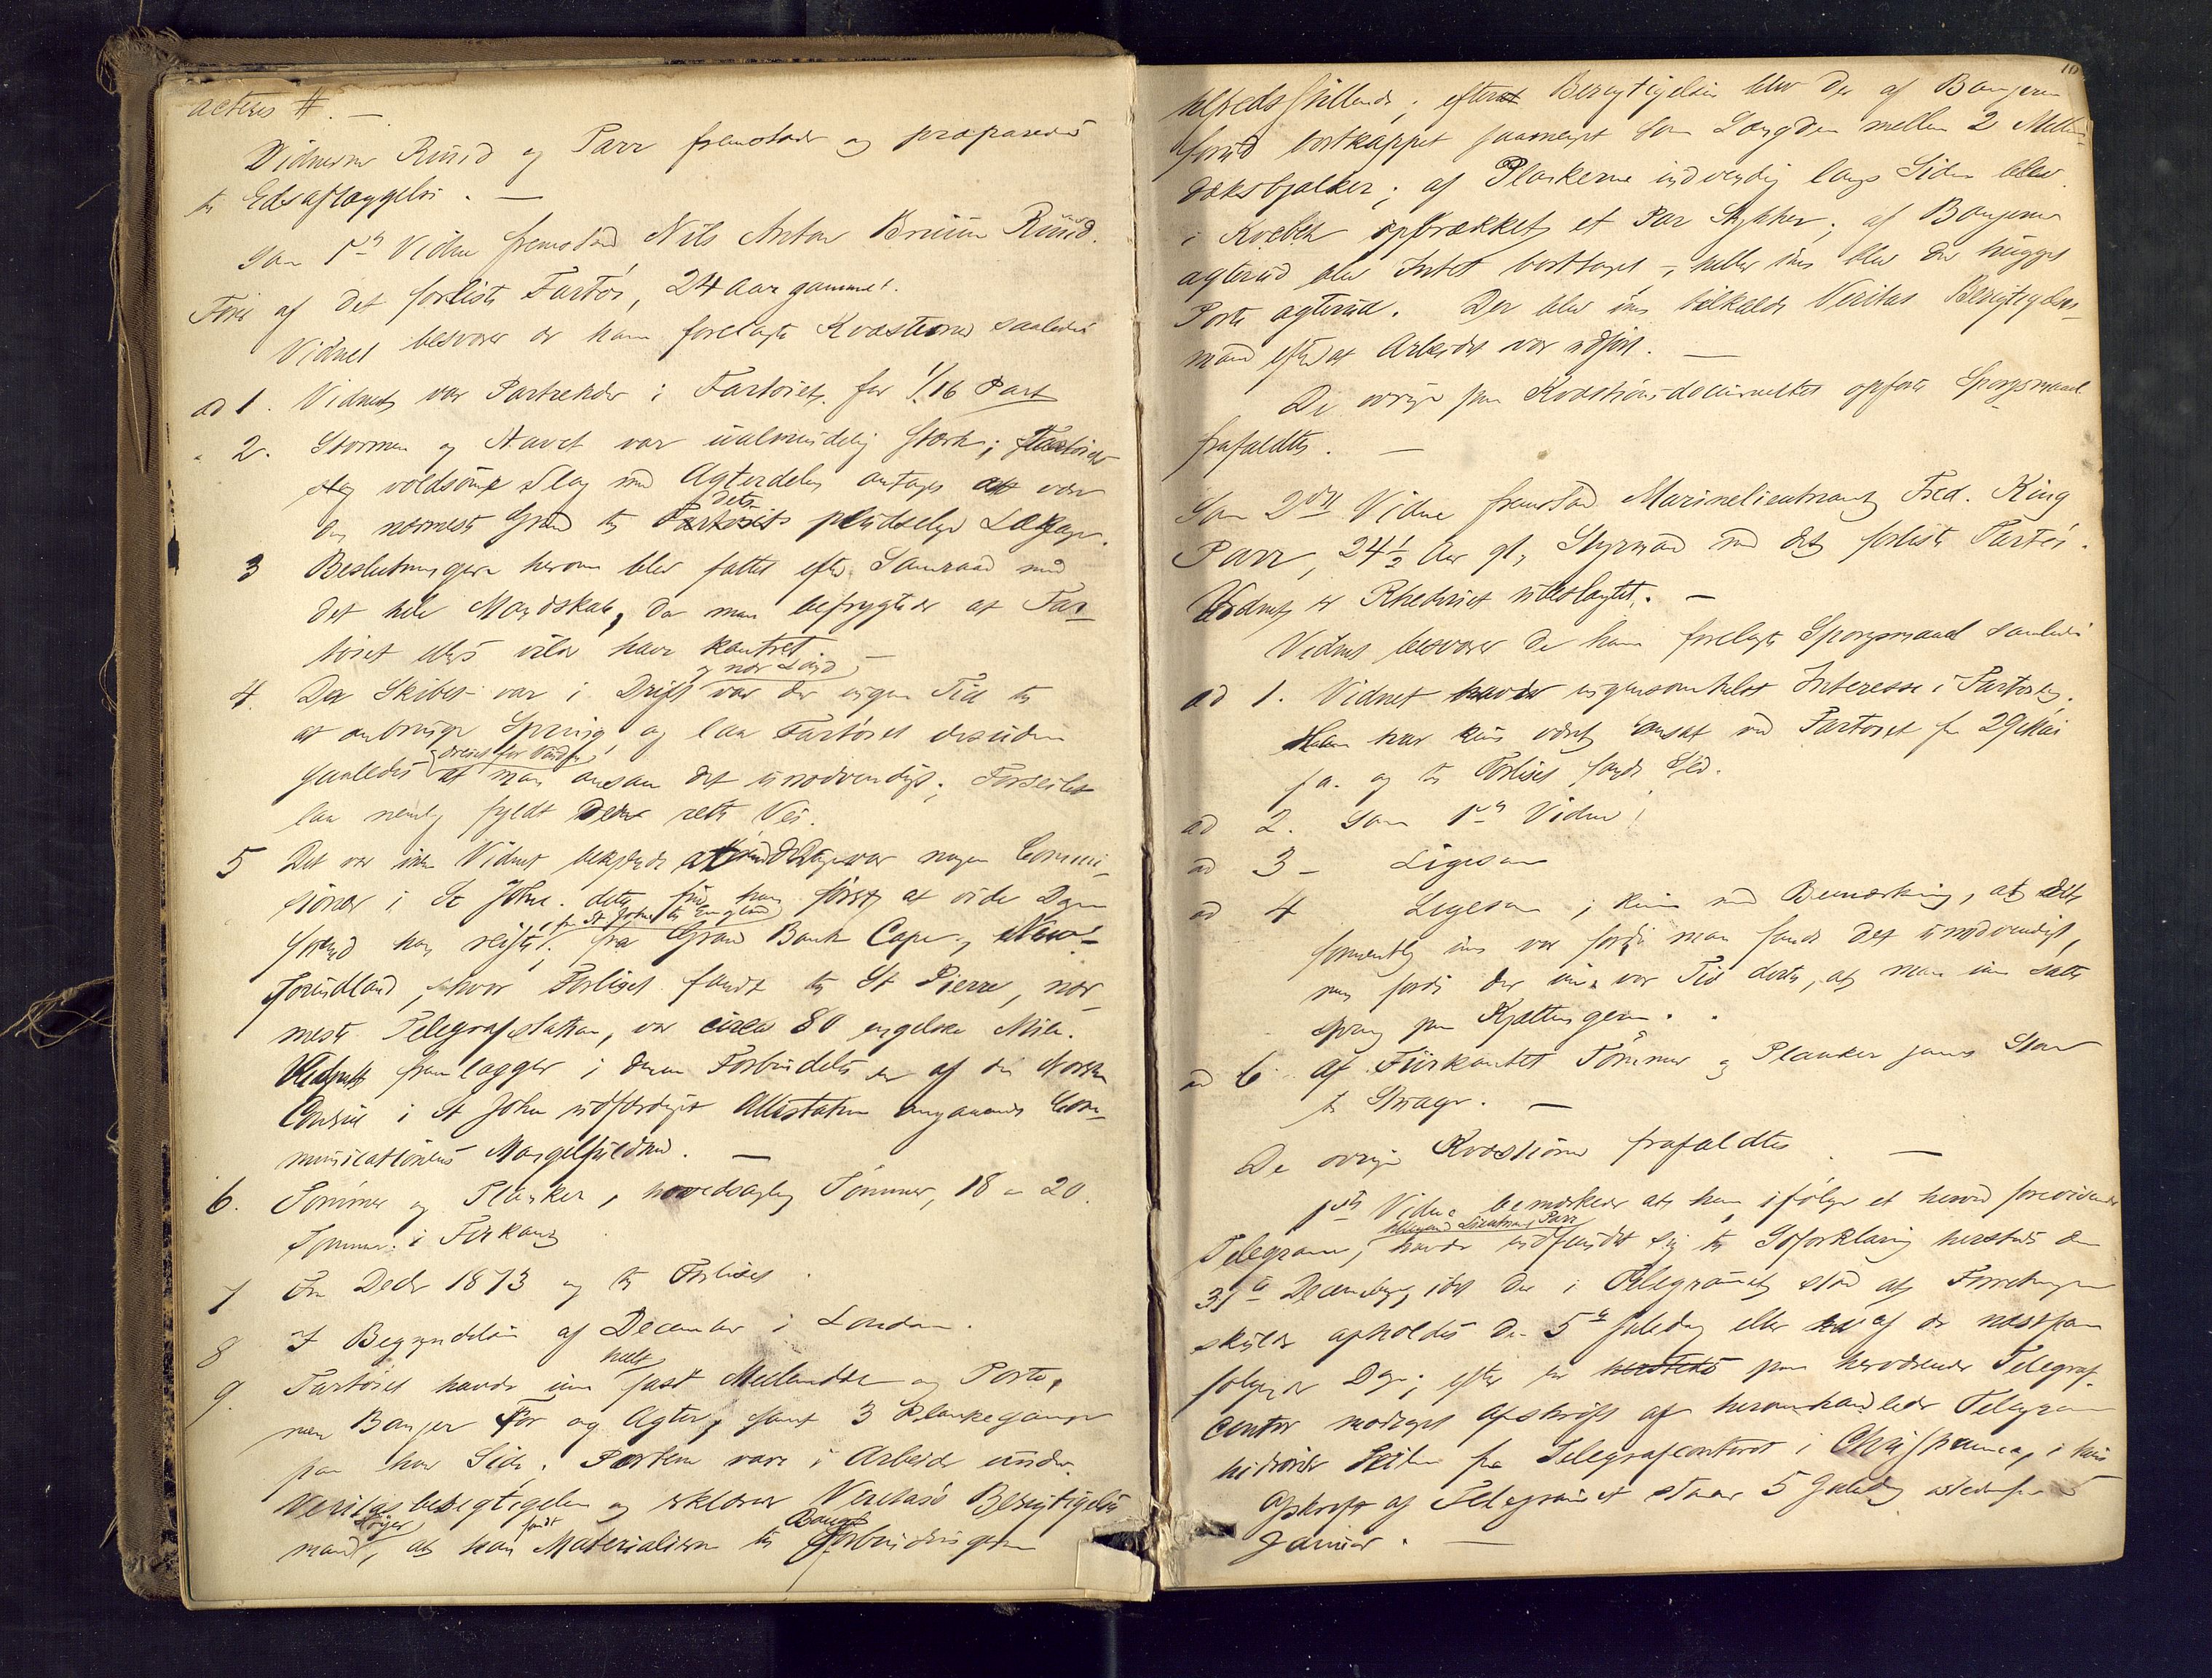 acteres #. —
Vidnerne Ruud og Parr fremstode og præparedes
til Edsaflæggelse. —
Som 1ste Vidne fremstod Nils Anton Bruun Ruud.
Fører af det forliste Fartøi, 24 Aar gammel.
Vidnet besvarer de ham forelagte Kvæstioner saaledes
ad 1. Vidnet var Partreder i Fartøiet for 1/16 Part
" 2. Stormen og Havet var ualmindelig stærk; Fartøiets
voldsomme Slag med Agterdelen antages at være
den nærmeste Grund til dets pludselige Lækage.
3 Beslutningen herom blev fattet efter Samraad med
det hele Mandskab, da man befrygtede at Far-
tøiet ellers vilde have kantret
4. Da Skibet var i Drift og nær Land var der ingen Tid til
at anbringe Spring og laa Fartøiet desuden
saaledes at man ansaa det unødvendigt; Forseilet
laa nemlig fyldt den rette Vei.
5 Det var ikke Vidnet bekjendt at der var nogen Commi-
sionær i St John. dette fik han først at vide Dagen
førend han reiste fra St John til England; fra Grand Bank Cape, New-
foundland, hvor Forliset fandt til St Pierre, nær-
meste Telegrafstation, var circa 80 engelske Mile.
Vidnet fremlægger i denne Forbindelse en af den Norske
Consul i St John udfærdiget Attestation angaaende Com-
municationens Mangelfuldhed. —
6. Tømmer og Planker, hovedsagelig Tømmer, 18 a 20
Tommer i Firkant
7 Fra Decbr 1873 og til Forliset.
8 I Begyndelsen af December i London.
9. Fartøiet havde ikke helt fast Mellemdæk og Porte,
men Banjer For og Agter, samt 3 Plankegange
paa hver Side. Portene vare i Arbeide under
Veritasbesigtigelsen og erklærer Veritas's Besigtigelses
mand, at han fandt Materialierne til Forbindingerne
tilfredsstillende; efter Besigtigelsen blev der af Banjeren
forud bortkappet saameget som Længden mellem 2 Mellem-
dæksbjælker; af Plankerne indvendig langs Siden blev
i Kvebek opbrækket et Par Stykker; af Banjerne
agterud blev Intet borttaget, heller ikke blev der hugget
Porte agterud. Der blev ikke tilkaldt Veritas Besigtigelses-
mand efterat Arbeidet var udført. —
De øvrige paa Kvæstionsdocumentet opførte Spørgsmaal
frafaldtes. —
Som 2det Vidne fremstod Marinelieutenant Fred. King
Parr, 24½ Aar gl, Styrmand med det forliste Fartøi.
Vidnet er Rhederiet ubeslægtet. —
Vidnet besvarer de ham forelagte Spørgsmaal saaledes
ad 1. Vidnet havde ingensomhelst Interesse i Fartøiet.
Han har kun været ansat ved Fartøiet fra 29 Mai
f. A. og til Forliset fandt Sted.
ad 2. Som 1ste Vidne
ad 3 – Ligesom
ad 4 Ligesom; kun med Bemærkning, at dette
fornemlig ikke var fordi man fandt det unødvendigt,
men fordi der ikke var Tid dertil, at man ikke satte
Spring paa Kjættingen.
ad 6. Af Fiirkantet Tømmer og Planker samt Stav
til Stuage. —
De øvrige Kvæstioner frafaldtes. —
1ste Vidne bemærkede at han ifølge et herved foreviisende
Telegram, tilligemed Lieutenant Parr, havde indfundet sig til Søforklaring hersteds den
31te December, idet der i Telegrammet stod at Forretningen
skulde afholdes den 5te Juledag eller en af de næstpaa
følgende Dage; efter en paa herværende Telegraf-
contor modtaget Afskrift af heromhandlede Telegram
hidrørte Feilen fra Telegrafcontoret i Christiania, i hvis
Afskrift af Telegrammet staar 5 Juledag istedetfor 5
Januar. —